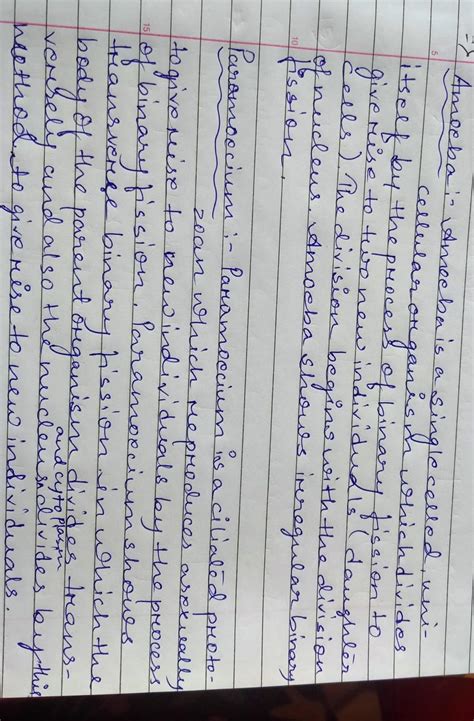 5
Amoeba :- Amoeba is a single celled, uni-
cellular organism which divides
itself by the process of binary fission to
give rise to two new individuals (daughter
cells) The division begins with the division
of nucleus. Amoeba shows irregular binary
10 fission.
Paramoecium :- Paramoecium is a ciliated photo-
zoan which reproduces asexually
to give rise to new individuals by the process
15 of binary fission. Paramoecium shows
transverse binary fission in which the
body of the parent organism divides trans-
versely and also the nucleus and cytoplasm divides by this
method to give rise to new individuals.